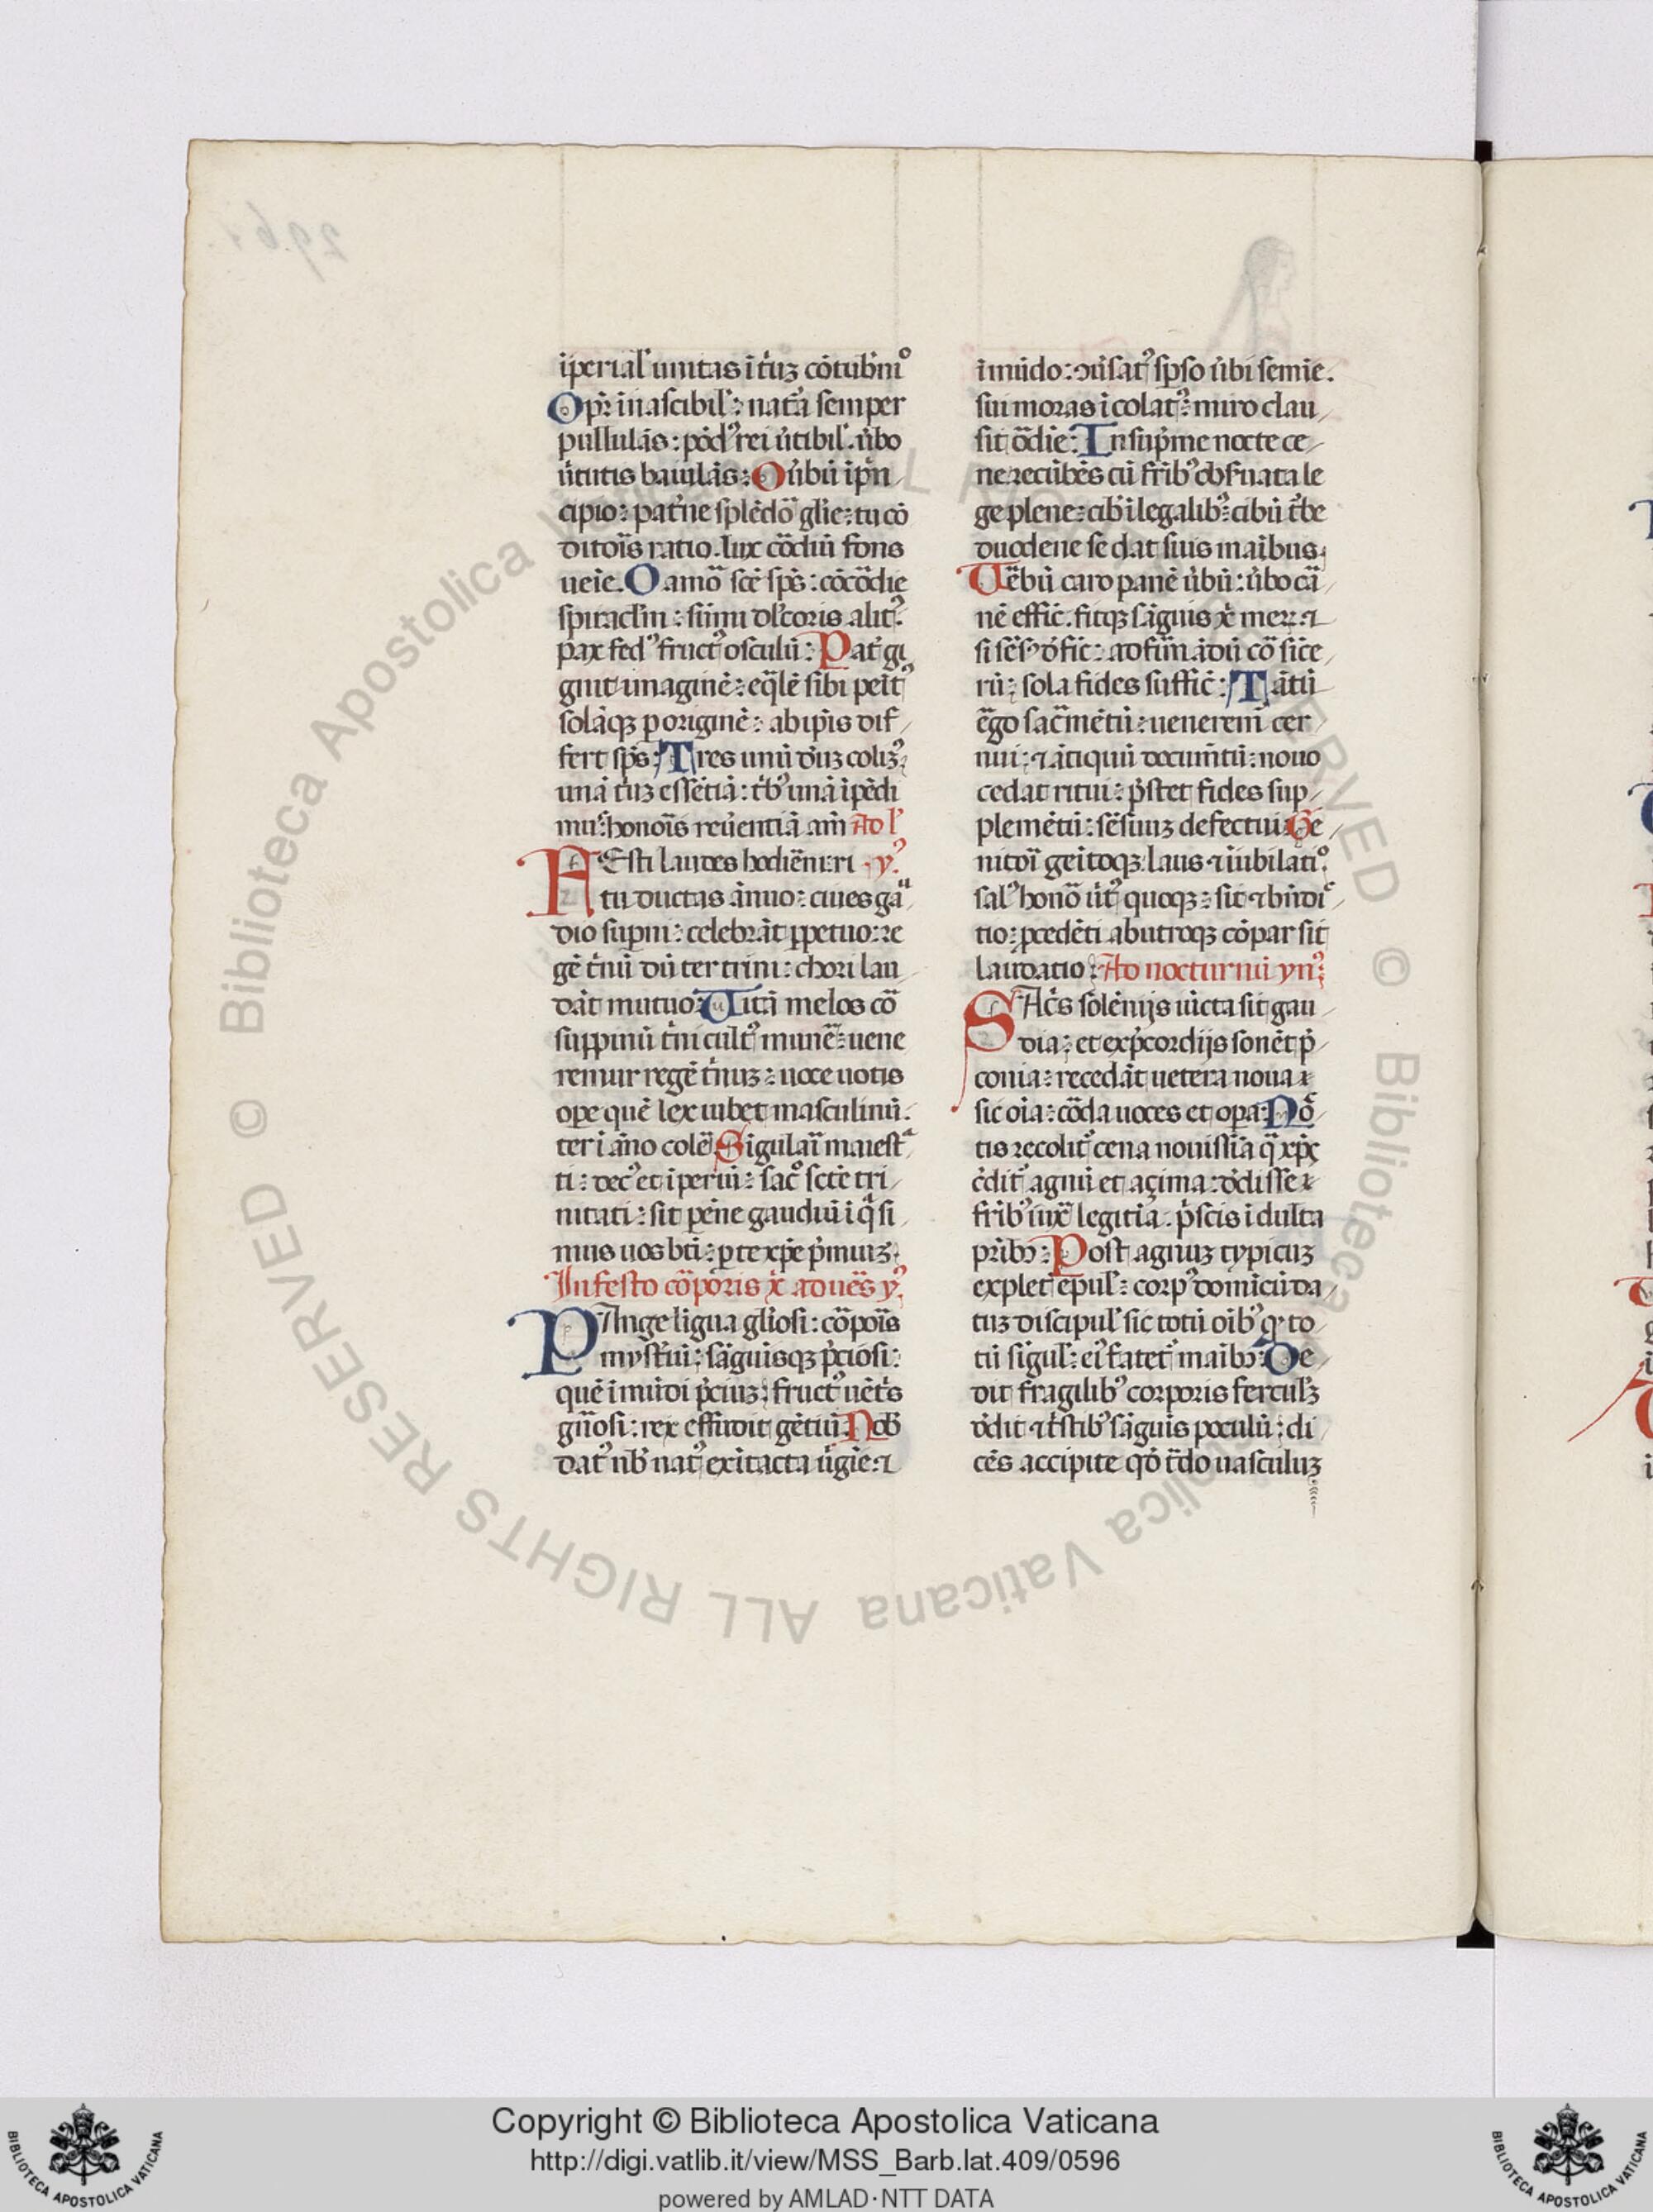 iperial' unitas i t'uz cōtub'ni°
O pr̄ inascibil': nat'a semper
pullulās: pōdꝰ rei ūtibil'. ūbo
ūtutis baiulās: O ūbū ipn
cipio: pat'ne splēdō gl'ie: tu cō
ditoīs ratio. lux cōdiū fons
ueie. O amō scē sp̄s: cōcōdie
spiraclm̄: sūmi dl'coris alit'.
pax fedꝰ fructꝰ osculū: Pat' gi
gnit imaginē: eq̄lē sibi peīt'
solāqz p originē: ab ip̄is dif
fert sp̄s: Tres unū dūz colīz:
unā t'uz essētiā: t'bꝰ unā ipēdi
muꝰ: honoīs reūentiā am̄ Ad l'
FEsti laudes hodiēni: ri yꝰ
tu ductas ānuo: ciues ga
dio sup̄ni: celebrāt ꝑpetuo: re
gē t'nū dū ter trini: chori lau
dāt mutuo: Uitā melos cō
suppinū t'ni cult' munē: uene
remur regē t'nuz: uoce uotis
ope quē lex iubet masculinū:
ter i āno colē. Sigulaī maiest
ti: decꝰ et iperiū: sac° scte tri
nitati: sit pēne gaudiū i q̄ si
mus uos bti: p te xp̄e p̄miuz.
In festo cōporis x̄ aduēs yꝰ
PAnge ligua gl'iosi: cōpoīs
mysteriū: sāguisqz p̄ciosi:
quē i mūdi p̄ciuz: fructꝰ uēt's
gn̄osi: rex effudit gētiū. Nob
datꝰ nb' natꝰ ex itacta ūgie: ⁊
i mūdo: ɔūsatꝰ sp̄so ūbi semie.
sui moras icolatꝰ: miro clau
sit ōdie: In sup̄me nocte ce
ne recūbēs cū fr̄ibꝰ obs'uata le
ge plene: cib' i legalibꝰ: cibū t'be
duodene se dat suis maibus.
Uēbū caro panē ūbū: ūbo cā
nē effic̄. fitqz sāguis x̄ mer: ⁊
si sēsꝰ dēfic̄: ad fūmādū cō sice
rū: sola fides suffic̄: Tātū
ēgo sac̄mētū: uenerem̄ cer
nui: ⁊ ātiquū docum̄tū: nouo
cedat ritui: p̄stet fides sup
plemētū: sēsuuz defectui: Ge
nitoī geitoqz laus ⁊ iubilati°
salꝰ honō ūtꝰ quoqz: sit ⁊ bn̄di
tio: ꝓcedēti ab utroqz cōpar sit
laudatio: Ad nocturnū ynꝰ
SAc's sōlēnijs iūcta sit gau
dia: et ex p̄cordijs sonēt p̄
conia: recedāt uetera noua
sic oīa: cōda uoces et opa: No
tis recolitꝰ cena nouissīa q̄ xp̄c
c'editꝰ agnū et açima: dēdisse
fr̄ibꝰ iuxē legitia. p̄scis idulta
p̄ribꝰ: Post agnuz typicuz
expletꝰ epul': corpꝰ domicū da
tuz discipul' sic totū oībꝰ qd' to
tū sigul': eiꝰ fatetꝰ maibꝰ: De
dit fragilibꝰ corporis fercul'z
dēdit ⁊ t'stibꝰ sāguīs poculū: di
cēs accipite qd' t'do uasculuz
Copyright © Biblioteca Apostolica Vaticana
http://digi.vatlib.it/view/MSS_Barb.lat.409/0596
powered by AMLAD·NTT DATA